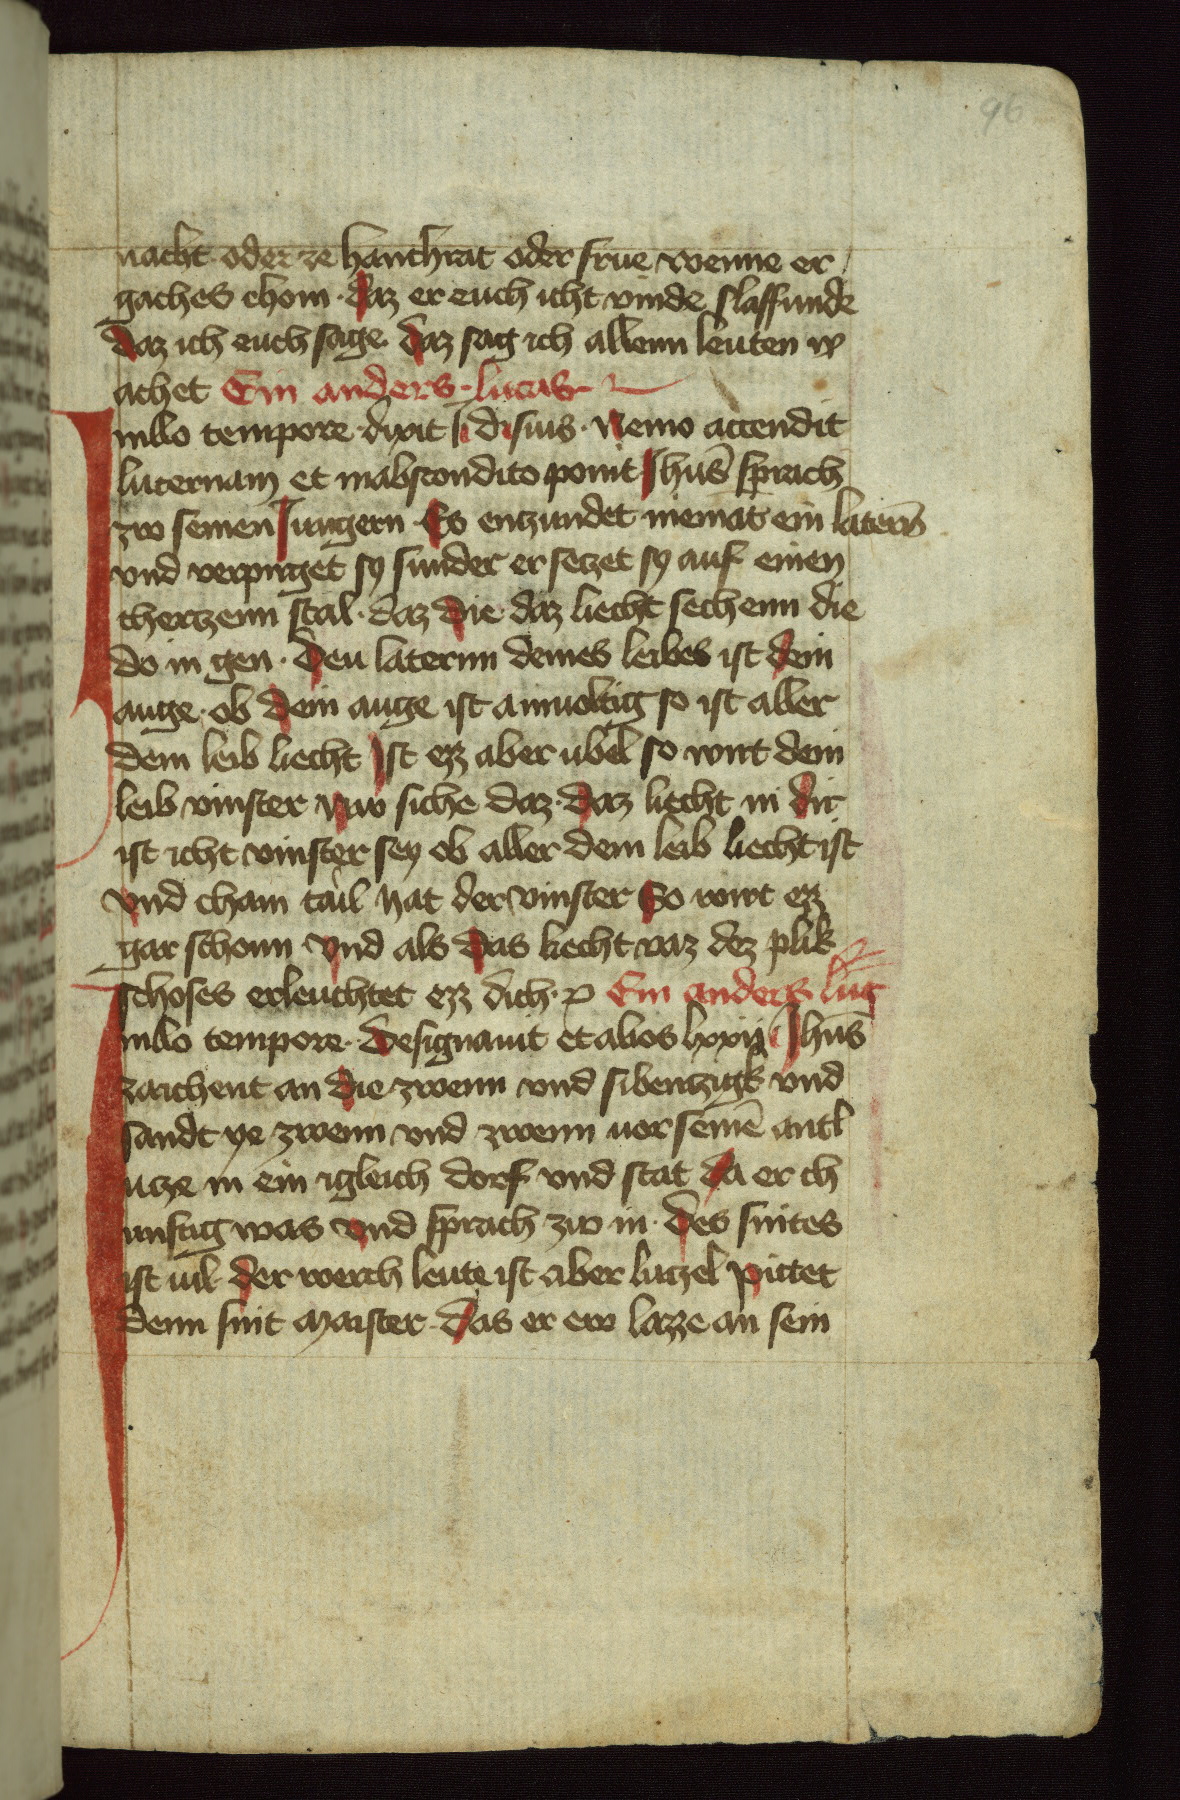 96
nacht oder ze hanchrat oder frue wenne er
gaches chom · daz er euch icht vinde slaffunde
daz ich euch sage daz sag ich allenn leuten w
achet Ein anders · lucas
Inillo tempore · dixit i d suis · Nemo accendit
lucernam et inabscondito ponit Jhūs sprach
zw seinen Jungern · Es enzundet niemāt ein laternn̄
vnd verpirget sy sunder er seczet sy auf einen
cherczenn stal · daz die daz liecht sechenn die
do in gen · Deu laternn deines leibes ist dein
auge · ob dein auge ist ainuoltig so ist aller
dein leib liecht Ist ezz aber ubel so wirt dein
leib vinster Nw siche daz · daz liecht in dir
ist icht vinster sey ob aller dein leib liecht ist
vnd chain tail hat der vinster So wirt ezz
gar schonn vnd als das liecht vaz dez plik
schoses erleuchtet ezz dich · Ein anders luc
Inillo tempore · Designauit et alios lxxij Jhūs
zaichent an die zwenn vnd sibenczigk vnd
sandt ye zwenn vnd zwenn vor seinē antl
ucze in ein igleich dorf vnd stat da er ch
unftig was vnd sprach zw in · des snites
ist uil der werch leute ist aber luczel pittet
denn snit maister · das er ew lazze an sein